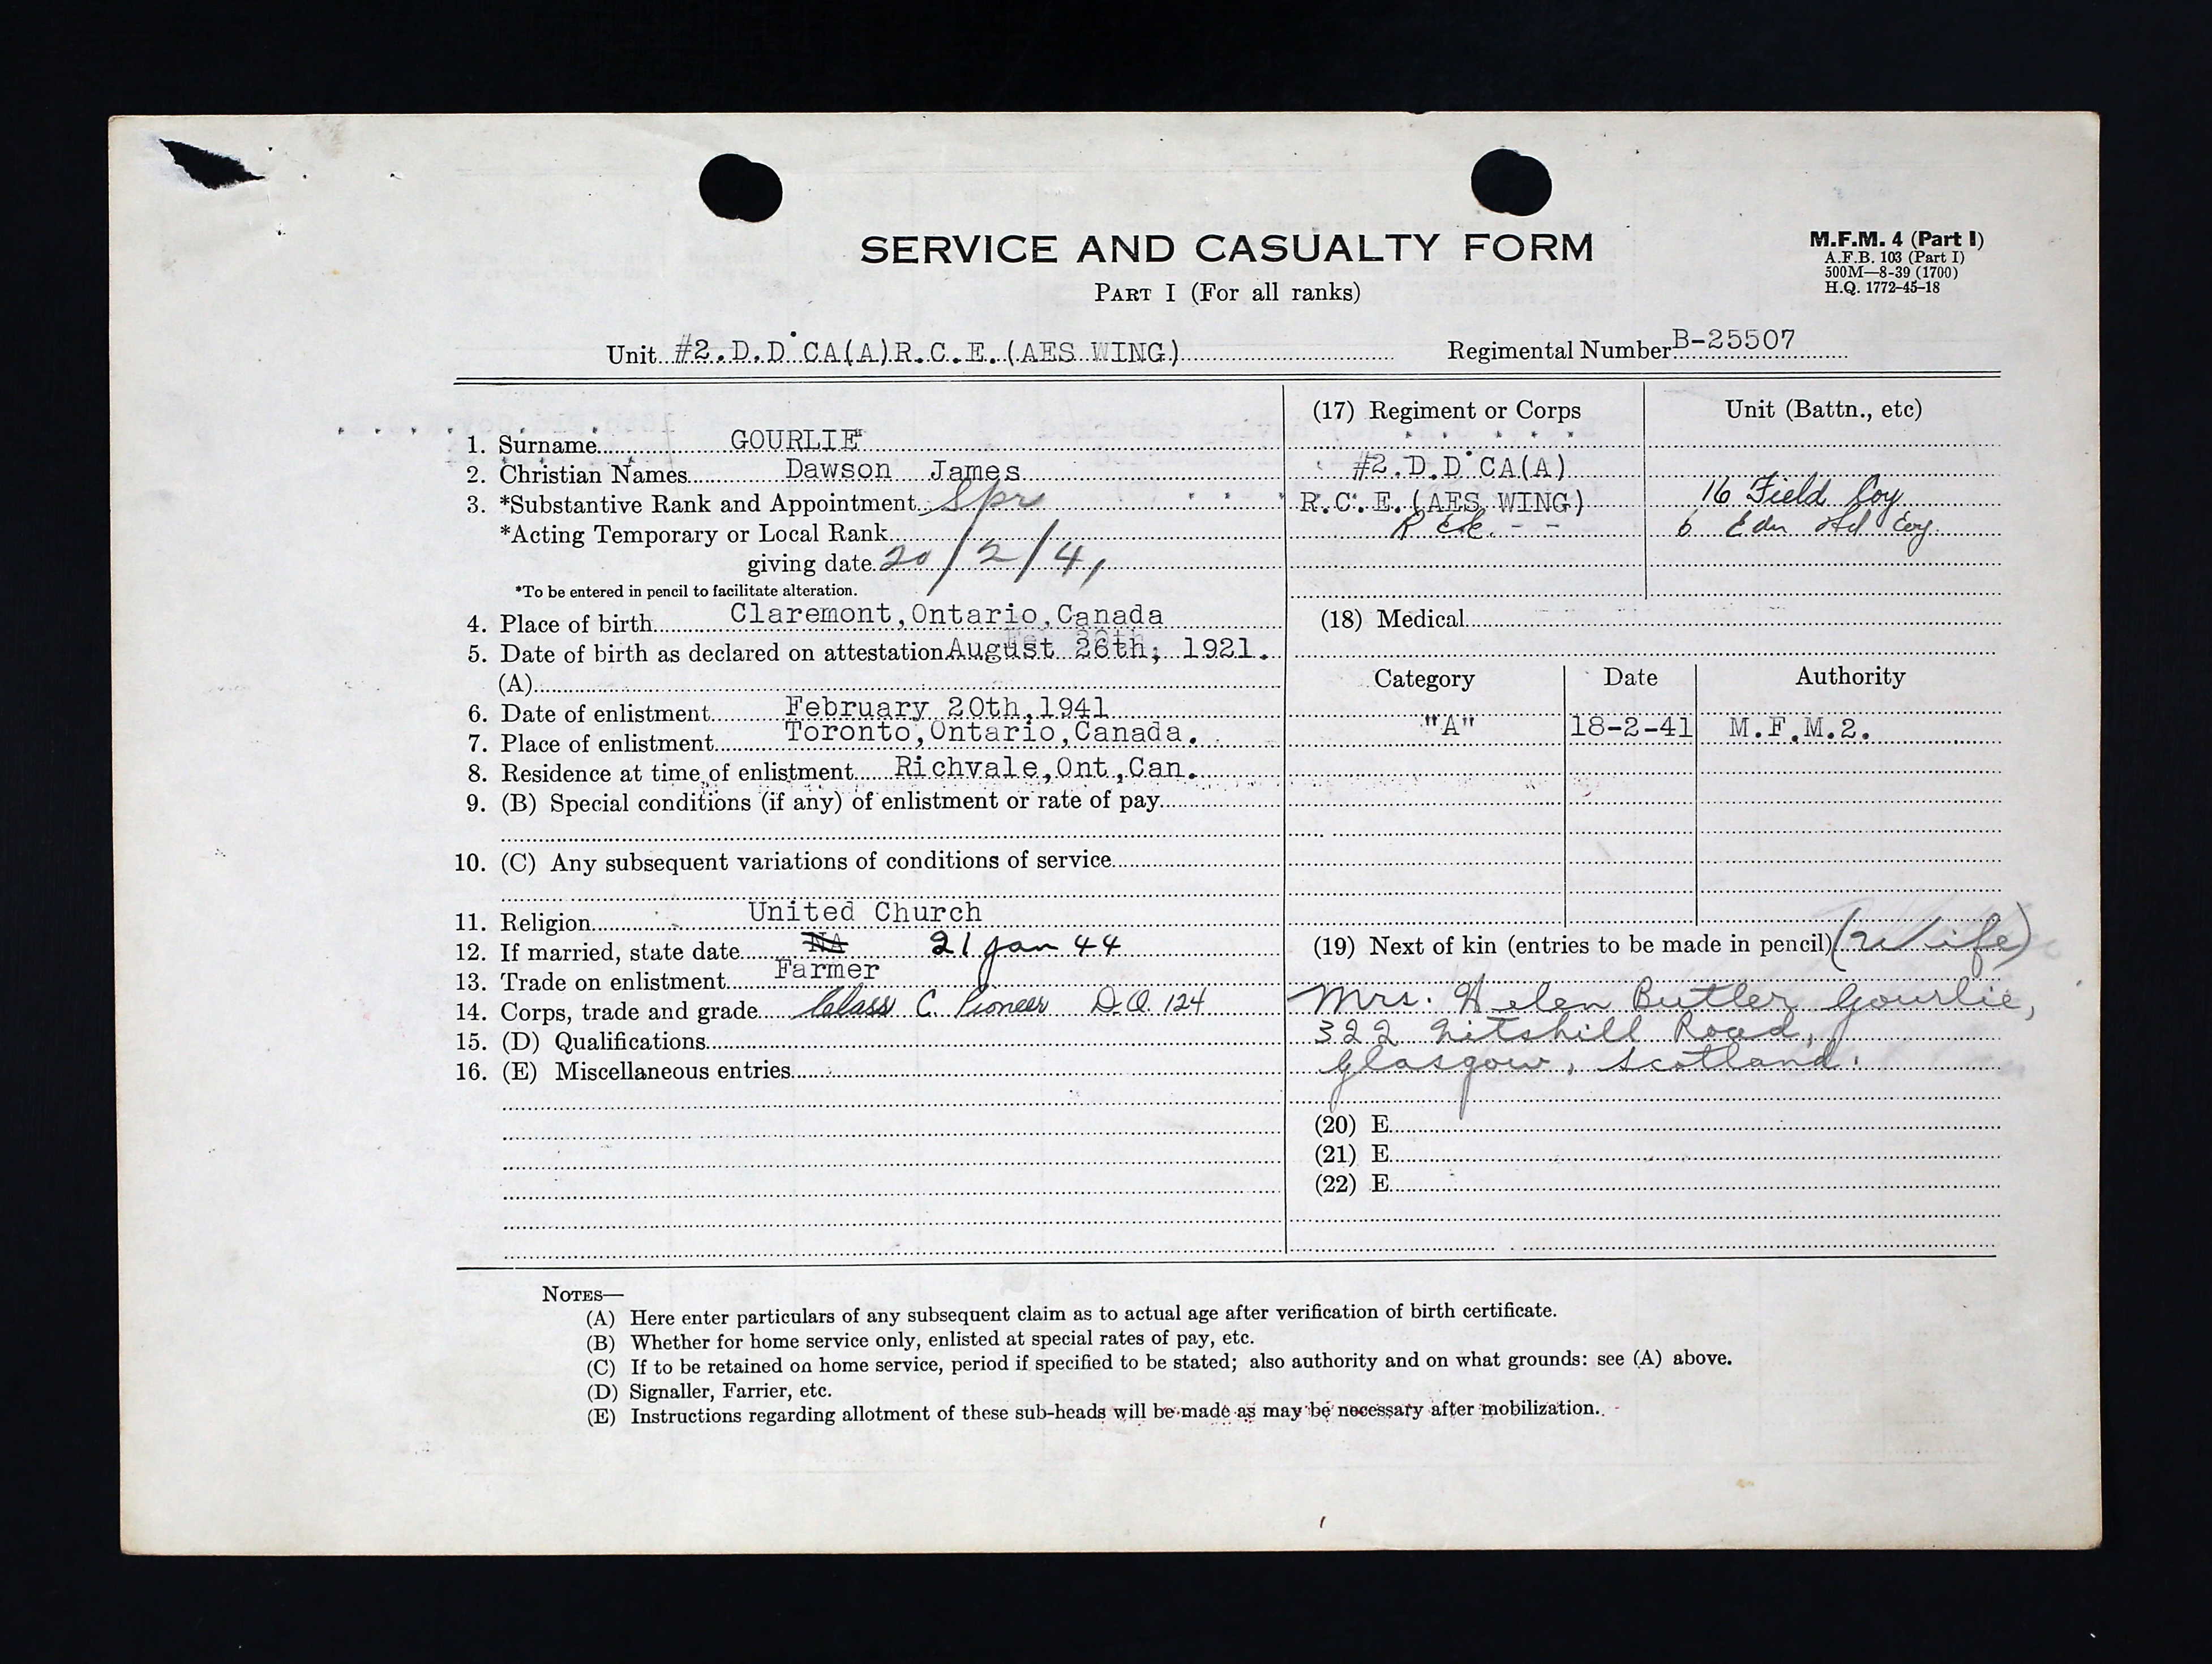 SERVICE AND CASUALTY FORM
PART I (For all ranks)
M.F.M. 4 (Part I)
A.F.B. 103 (Part I)
500M—8-39 (1700)
H.Q. 1772-45-18
Unit #2.D.D CA(A)R.C.E.(AES WING)
Regimental Number B-25507
1. Surname GOURLIE
2. Christian Names Dawson James
3. *Substantive Rank and Appointment Spr
*Acting Temporary or Local Rank
giving date 20/2/41
*To be entered in pencil to facilitate alteration.
4. Place of birth Claremont,Ontario,Canada
5. Date of birth as declared on attestation August 26th, 1921.
(A)
6. Date of enlistment February 20th,1941
7. Place of enlistment Toronto,Ontario,Canada.
8. Residence at time of enlistment Richvale,Ont,Can.
9. (B) Special conditions (if any) of enlistment or rate of pay
10. (C) Any subsequent variations of conditions of service
11. Religion United Church
12. If married, state date NA 21 Jan 44
13. Trade on enlistment Farmer
14. Corps, trade and grade Class C. Pioneer D.O. 124
15. (D) Qualifications
16. (E) Miscellaneous entries
(17) Regiment or Corps Unit (Battn., etc)
#2.D.D CA(A)
R.C.E.(AES WING) 16 Field Coy
RCE. - - 6 Cdn Fd Coy.
(18) Medical
Category Date Authority
"A" 18-2-41 M.F.M.2.
(19) Next of kin (entries to be made in pencil) (Wife)
Mrs. Helen Butler Gourlie,
322 Nitshill Road,
Glasgow, Scotland.
(20) E
(21) E
(22) E
NOTES—
(A) Here enter particulars of any subsequent claim as to actual age after verification of birth certificate.
(B) Whether for home service only, enlisted at special rates of pay, etc.
(C) If to be retained on home service, period if specified to be stated; also authority and on what grounds: see (A) above.
(D) Signaller, Farrier, etc.
(E) Instructions regarding allotment of these sub-heads will be made as may be necessary after mobilization.